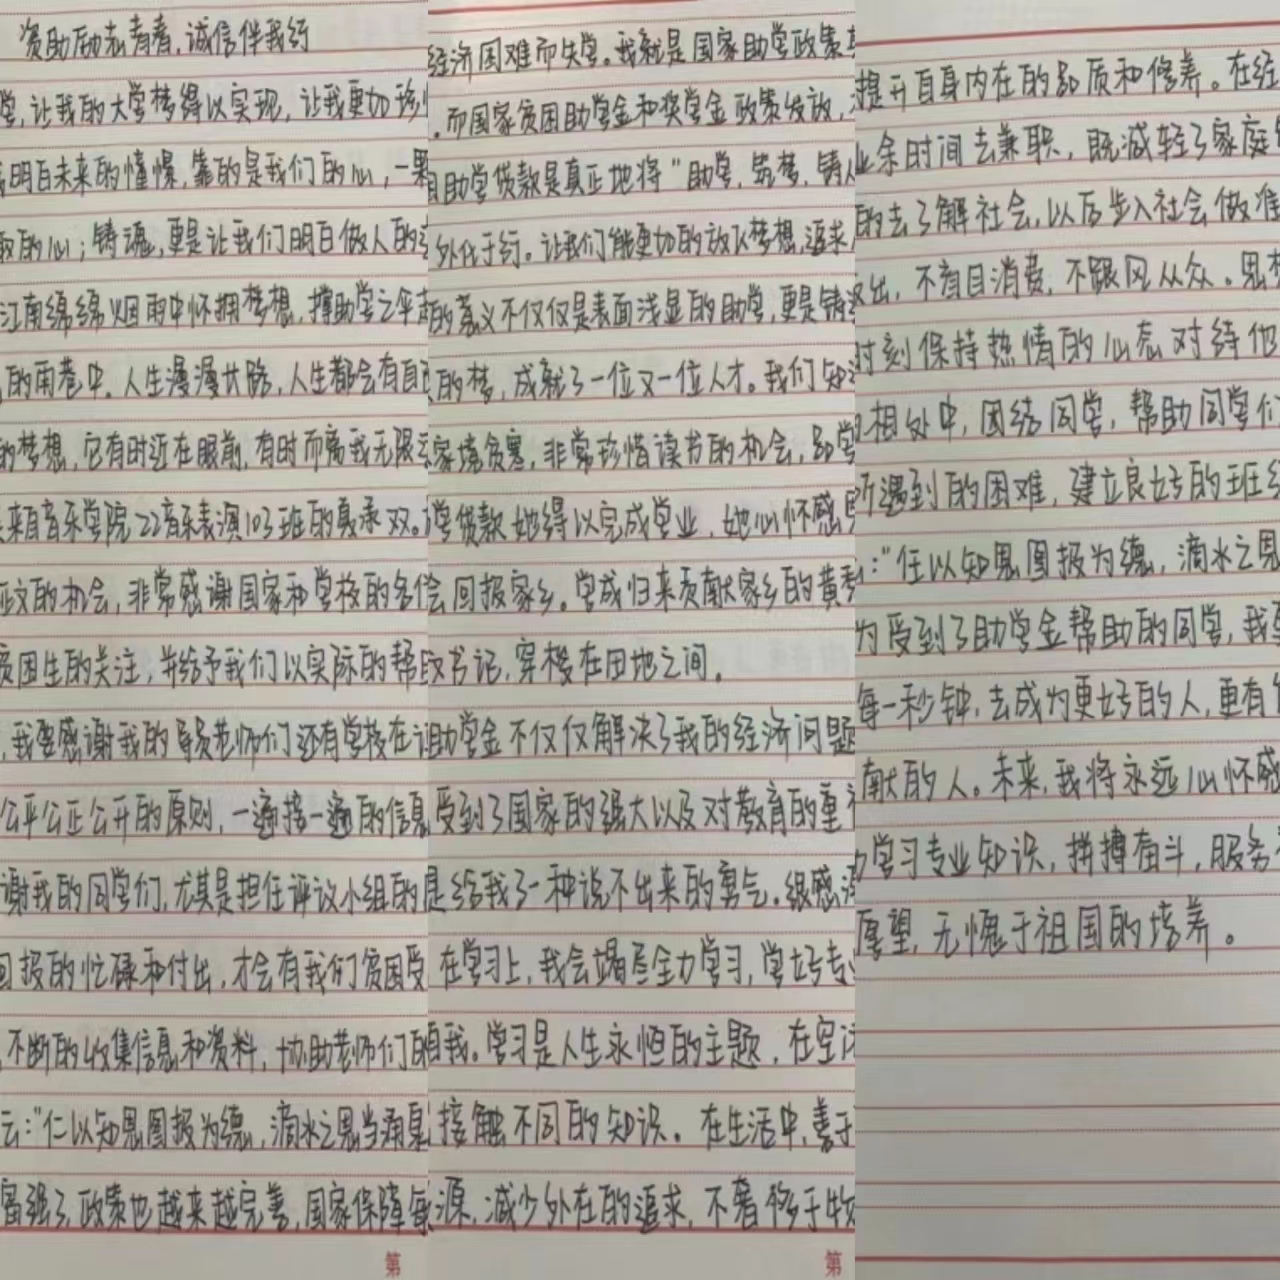 资助励志青春,诚信伴我行
学,让我的大学梦得以实现,让我更加珍
明白未来的憧憬,靠的是我们的心,一颗
取的心;铸魂,更是让我们明白做人的
江南绵绵烟雨中怀拥梦想,撑助学之伞
的雨巷中。人生漫漫长路,人生都会有自
的梦想,它有时近在眼前,有时而离我无限
来自音乐学院22音乐表演103班的
征文的机会,非常感谢国家和学校的各
贫困生的关注,并给予我们以实际的帮
,我要感谢我的导员老师们还有学校在
公平公正公开的原则,一遍接一遍的信息
谢我的同学们,尤其是担任评议小组的
回报的忙碌和付出,才会有我们贫困受
,不断的收集信息和资料,协助老师们
云:"仁以知恩图报为德,滴水之恩当涌泉
富强了,政策也越来越完善,国家保障每
经济困难而失学。我就是国家助学政策
。而国家贫困助学金和奖学金政策发放,
助学贷款是真正地将"助学,筑梦,铸人
外化于行。让我们能更加的放飞梦想,追求
的意义不仅仅是表面浅显的助学,更是铸
的梦,成就了一位又一位人才。我们知
家境贫寒,非常珍惜读书的机会,
学贷款她得以完成学业,她心怀感
回报家乡。学成归来贡献家乡的黄
书记,穿梭在田地之间。
助学金不仅仅解决了我的经济问题
受到了国家的强大以及对教育的重
是给我了一种说不出来的勇气。很感
在学习上,我会竭尽全力学习,学好专
自我。学习是人生永恒的主题,在空
接触不同的知识。在生活中,善于
源,减少外在的追求,不奢侈于物
第
第
提升自身内在的品质和修养。在经
业余时间去兼职,既减轻了家庭
的去了解社会,以后步入社会做准
出,不盲目消费,不跟风从众。思想
时刻保持热情的心态对待他
相处中,团结同学,帮助同学们
所遇到的困难,建立良好的班级
:"仁以知恩图报为德,滴水之恩
为受到了助学金帮助的同学,我
每一秒钟,去成为更好的人,更有
献的人。未来,我将永远心怀感
力学习专业知识,拼搏奋斗,服务
愿望,无愧于祖国的培养。